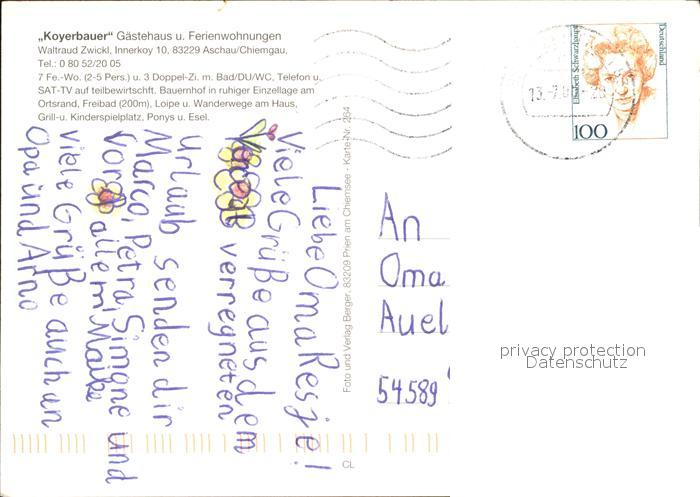 „Koyerbauer“ Gästehaus u. Ferienwohnungen
Waltraud Zwickl, Innerkoy 10, 83229 Aschau/Chiemgau,
Tel.: 0 80 52/20 05
7 Fe.-Wo. (2-5 Pers.) u. 3 Doppel-Zi. m. Bad/DU/WC, Telefon u.
SAT-TV auf teilbewirtschft. Bauernhof in ruhiger Einzellage am
Ortsrand, Freibad (200m), Loipe u. Wanderwege am Haus,
Grill-u. Kinderspielplatz, Ponys u. Esel.
Liebe Oma Resje!
Viele Grüße aus dem
verregneten
Urlaub senden dir
Marco, Petra, Simone und
vor allem Maike
viele Grüße auch an
Opa und Arno
Foto und Verlag Berger, 83209 Prien am Chiemsee · Karte Nr. 264
CL
Elisabeth Schwarzhaupt
Deutschland
100
An
Oma
Auel
54589
privacy protection
Datenschutz